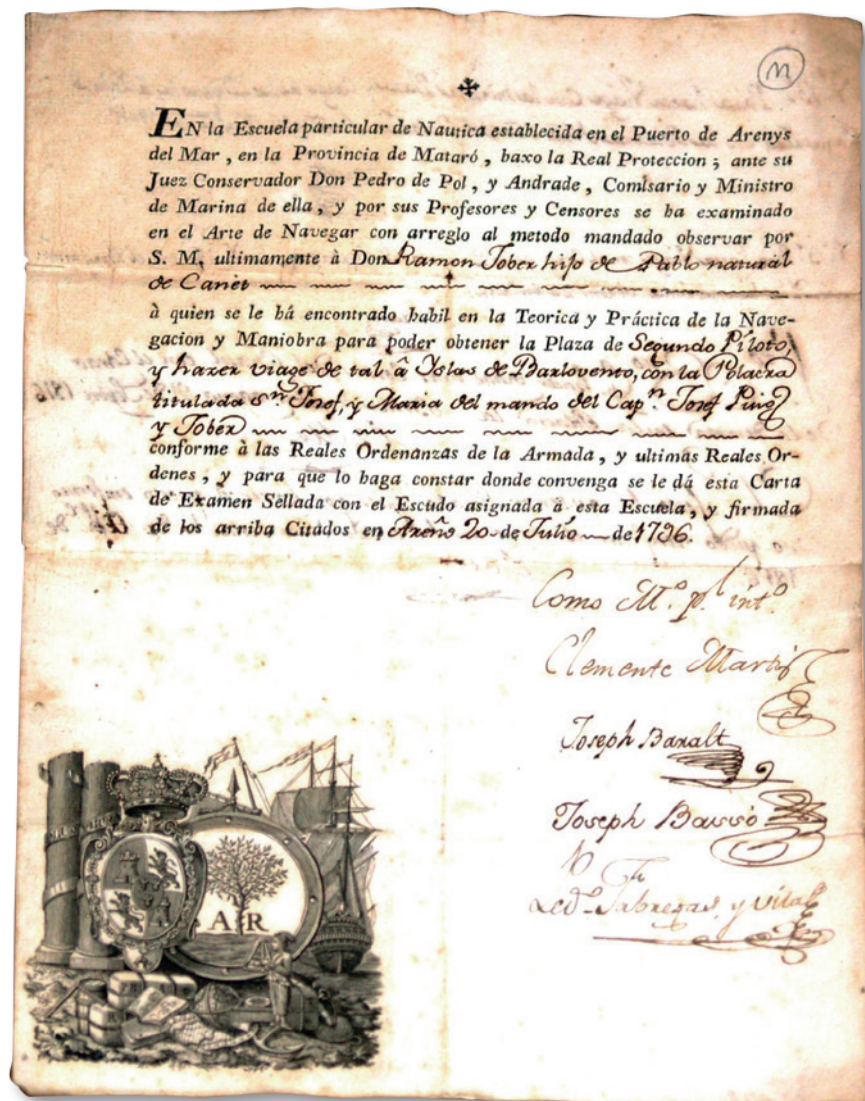 M
EN la Escuela particular de Nautica establecida en el Puerto de Arenys
del Mar, en la Provincia de Mataró, baxo la Real Proteccion; ante su
Juez Conservador Don Pedro de Pol, y Andrade, Comisario y Ministro
de Marina de ella, y por sus Profesores y Censores se ha examinado
en el Arte de Navegar con arreglo al metodo mandado observar por
S. M. ultimamente à Don Ramon Tober hijo de Pablo natural
de Canet
à quien se le há encontrado habil en la Teorica y Práctica de la Nave-
gacion y Maniobra para poder obtener la Plaza de Segundo Piloto,
y hazer viage de tal â Yslas de Barlovento, con la Polacra
titulada Sn. Josef, y Maria del mando del Capn. Josef Puig
y Tobér
conforme à las Reales Ordenanzas de la Armada, y ultimas Reales Or-
denes, y para que lo haga constar donde convenga se le dá esta Carta
de Examen Sellada con el Escudo asignada à esta Escuela, y firmada
de los arriba Citados en Areñs 20 de Julio de 1796.
Como Mo. pl. into.
Clemente Martí
Joseph Baralt
Joseph Bassó
Ledo. Fabregas y Vilar
A R